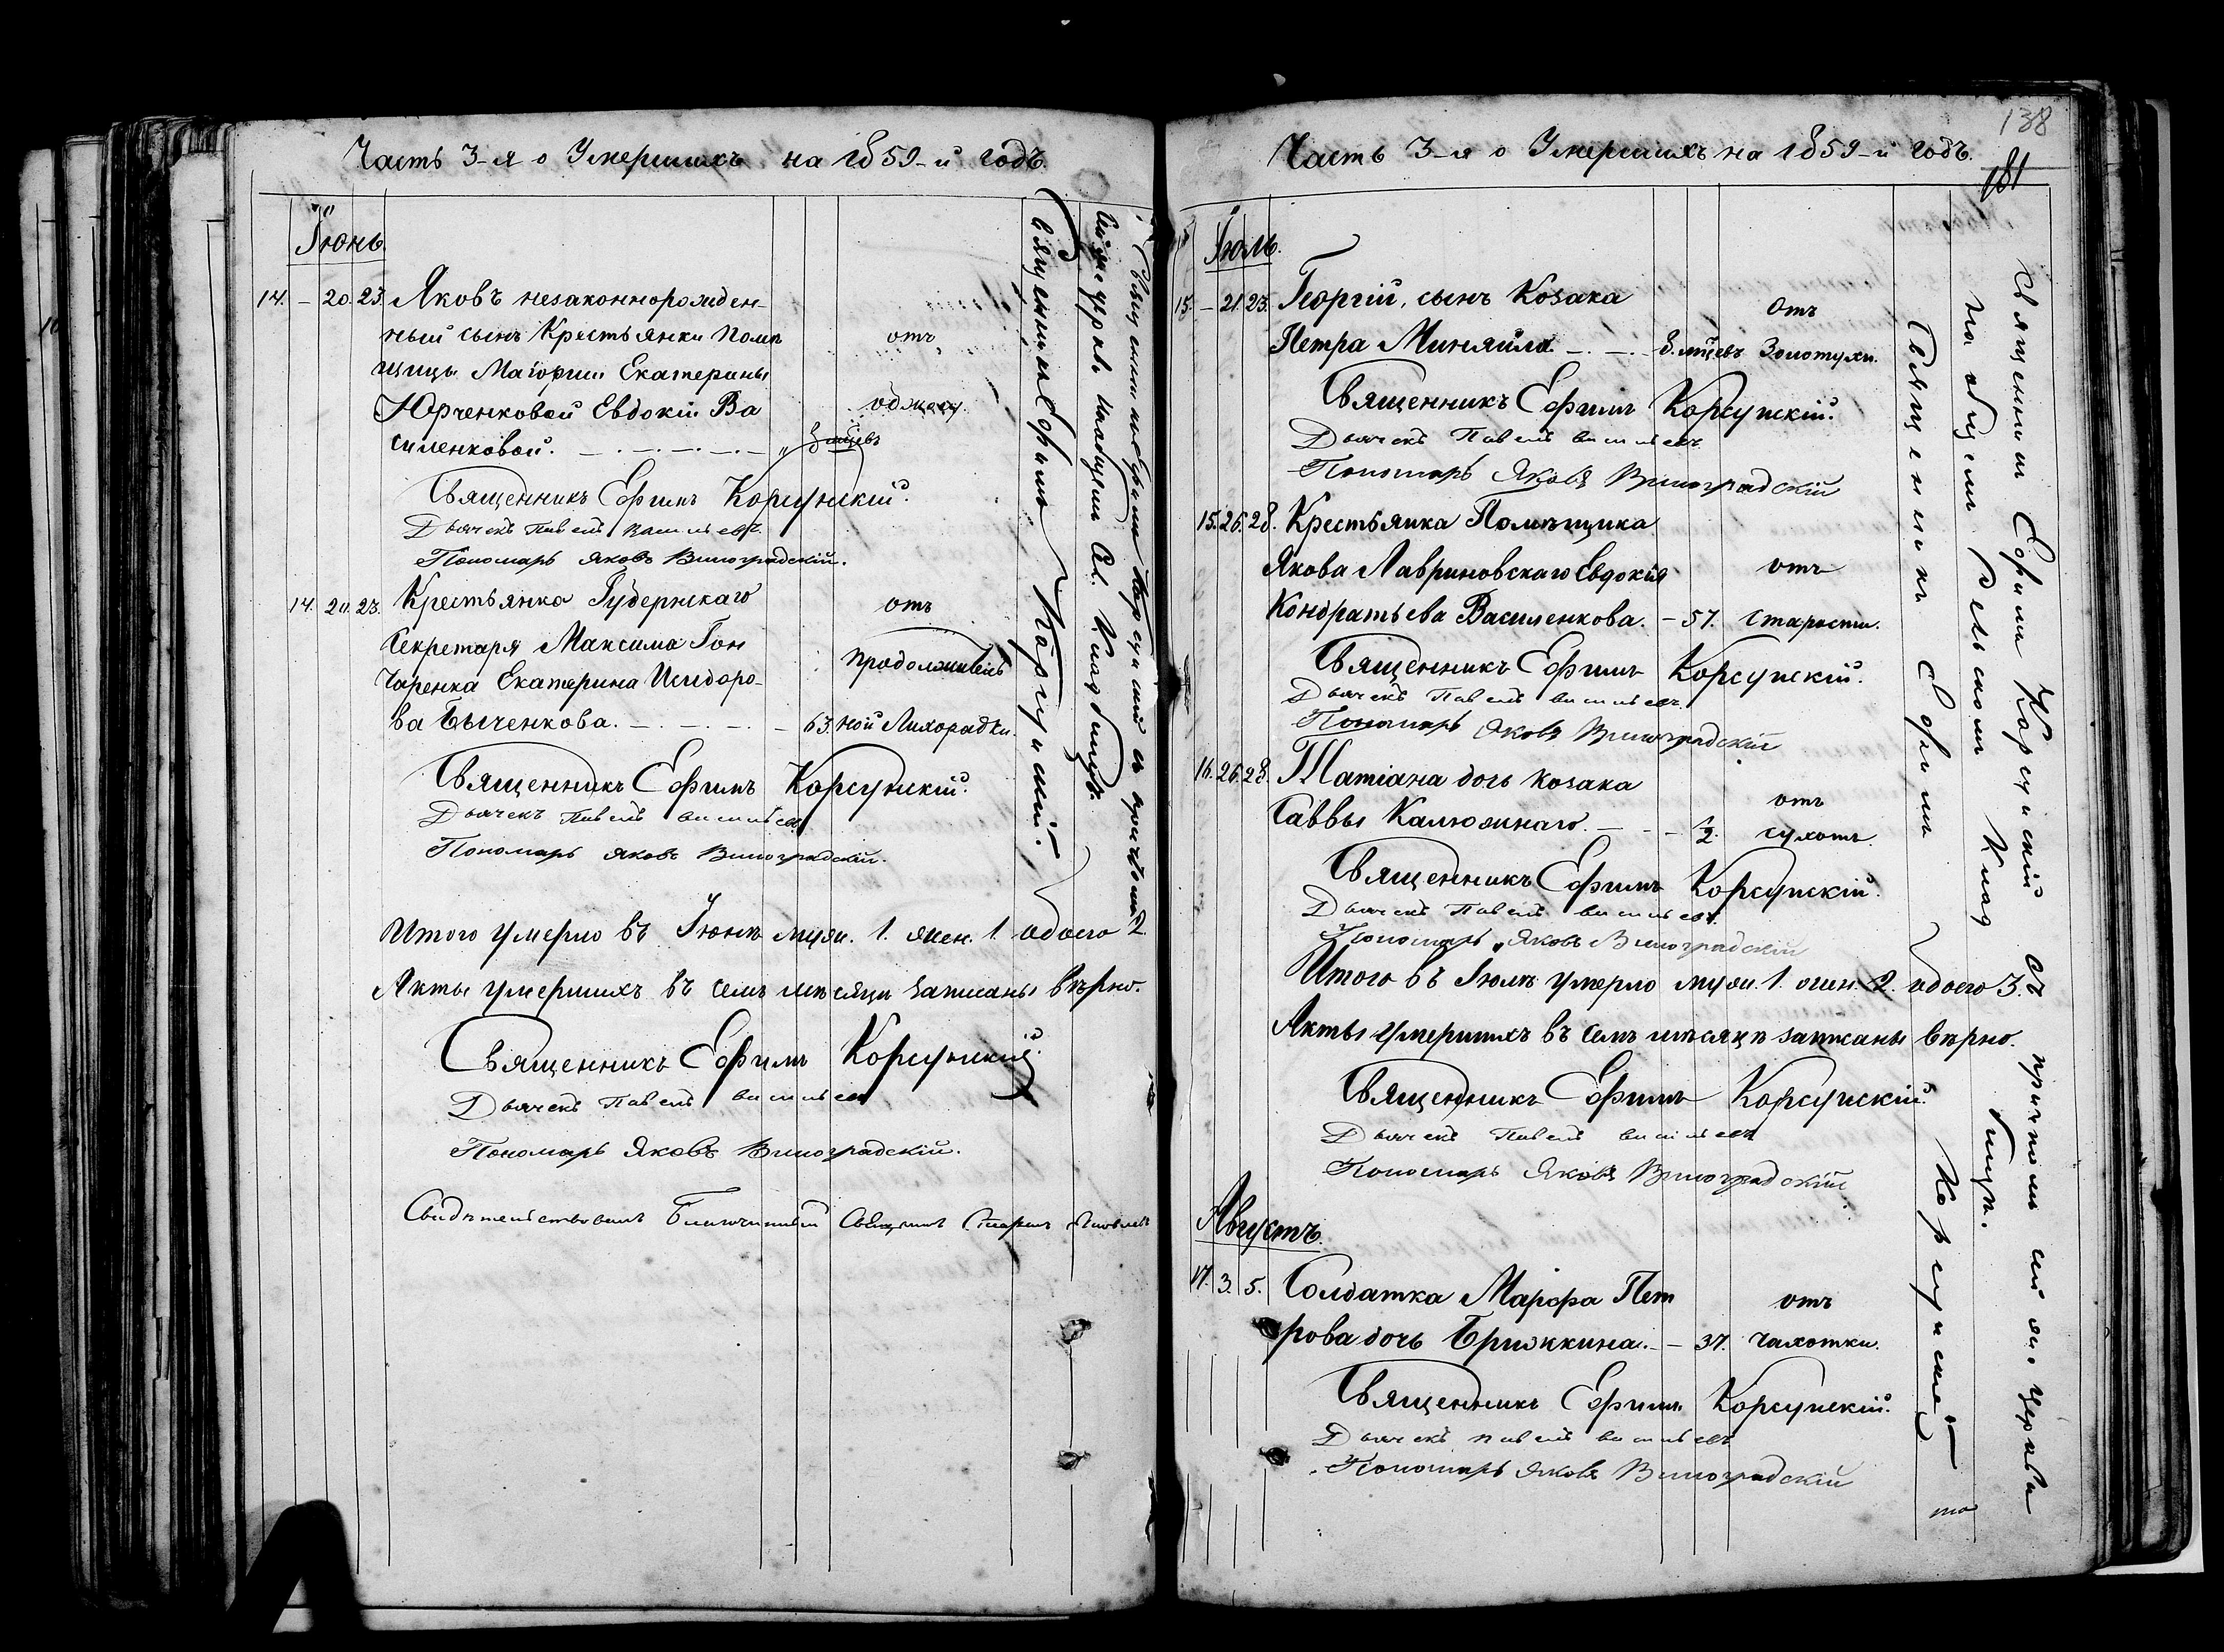 Часть 3-я о Умершихъ на 1859-й годъ.
Іюнь.
14. – 20. 23. Яковъ незаконнорожден-
ный сынъ Крестьянки Помѣ
щицы Маіорши Екатерины
отъ
Юрченковой Евдокіи Ва
силенковой.
Священникъ Ефимъ Корсунскій.
Дьячекъ Павелъ
Пономарь Яковъ Виноградскій.
14. 20. 23. Крестьянка Губернскаго
отъ
Секретаря Максима Гон
чаренка Екатерина Исидоро-
продолжитель
ва Быченкова. – 63. ной Лихорадки.
Священникъ Ефимъ Корсунскій.
Дьячекъ Павелъ
Пономарь Яковъ Виноградскій.
Итого умерло въ Іюнѣ муж. 1. жен. 1. обоего 2.
Акты умершихъ въ семъ мѣсяцѣ записаны вѣрно.
Священникъ Ефимъ Корсунскій.
Дьячекъ Павелъ
Пономарь Яковъ Виноградскій.
Свидѣтельствовалъ Благочинный
Священникъ Ефимъ Корсунскій.
Часть 3-я о Умершихъ на 1859-й годъ.
138
181
Іюль.
15. – 21. 23. Георгій, сынъ Козака
отъ
Петра Миняйла. – 8. мцевъ Золотухи.
Священникъ Ефимъ Корсунскій.
Дьячекъ Павелъ
Пономарь Яковъ Виноградскій
15. 26. 28. Крестьянка Помѣщика
Якова Лавриновскаго Евдокія
отъ
Кондратьева Василенкова. – 57. старости.
Священникъ Ефимъ Корсунскій.
Дьячекъ Павелъ
Пономарь Яковъ Виноградскій
16. 26. 28. Татіана дочь козака
отъ
Саввы Калюжнаго. – сухотъ.
Священникъ Ефимъ Корсунскій.
Дьячекъ Павелъ
Пономарь Яковъ Виноградскій
Итого въ Іюлѣ умерло муж. 1. жен. 2. обоего 3.
Акты умершихъ въ семъ мѣсяцѣ записаны вѣрно.
Священникъ Ефимъ Корсунскій.
Дьячекъ Павелъ
Пономарь Яковъ Виноградскій
Августъ.
17. 3. 5. Солдатка Марфа Пет
отъ
рова дочь Брижкина. – 37. чахотки.
Священникъ Ефимъ Корсунскій.
Дьячекъ Павелъ
Пономарь Яковъ Виноградскій
Священникъ Ефимъ Корсунскій
Священникъ Ефимъ Корсунскій съ причтомъ сей же церкви
на общемъ сельскомъ кладбищѣ.